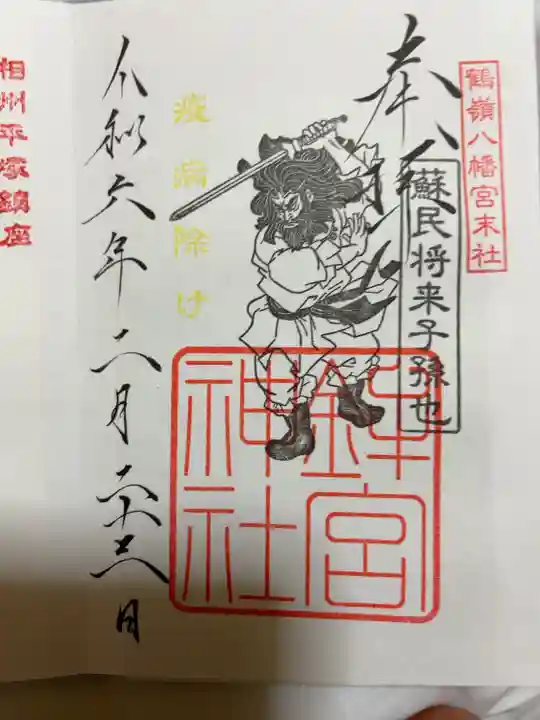 鶴嶺八幡宮末社
奉拝
蘇民将来子孫也
疫病除け
鉾宮
神社
令和六年二月二十三日
相州平塚鎮座